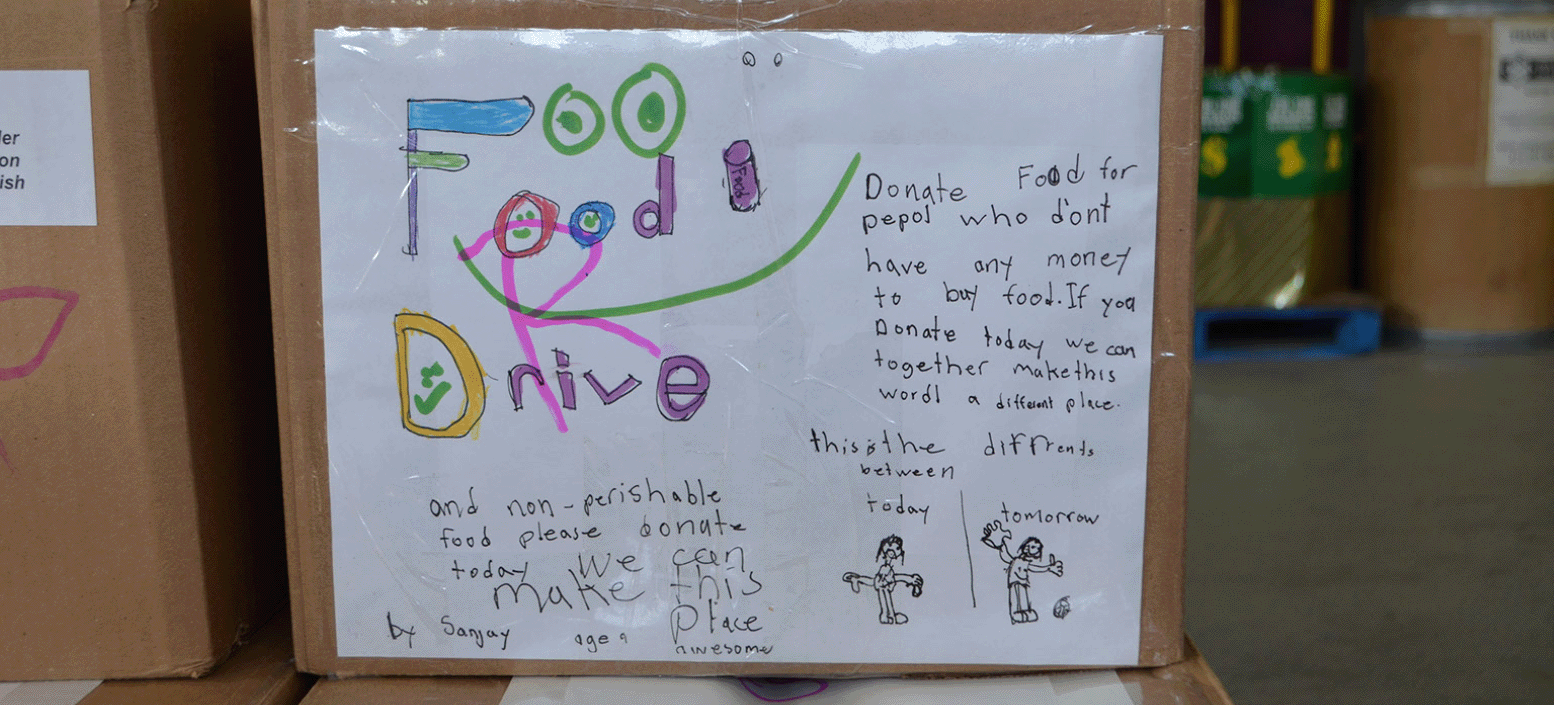 Food
Food
Drive
Donate Food for
pepol who d'ont
have any money
to buy food. If you
Donate today we can
together make this
wordl a different place.
this is the diffrents
between
today
tomorrow
and non-perishable
food please donate
today we can
make this
place
awesome
by Sanjay age 9
ler
on
ish